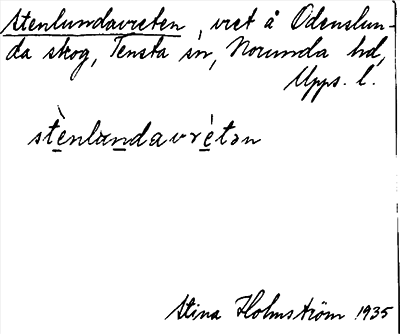 Stenlundavreten, vret å Odenslun-
da skog, Tensta sn, Norunda hd,
Upps. l.
stènlundavrétən
Stina Holmström 1935